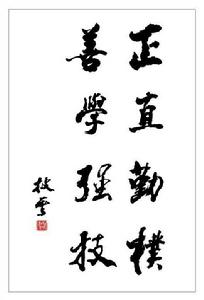 正直勤樸
善學强技